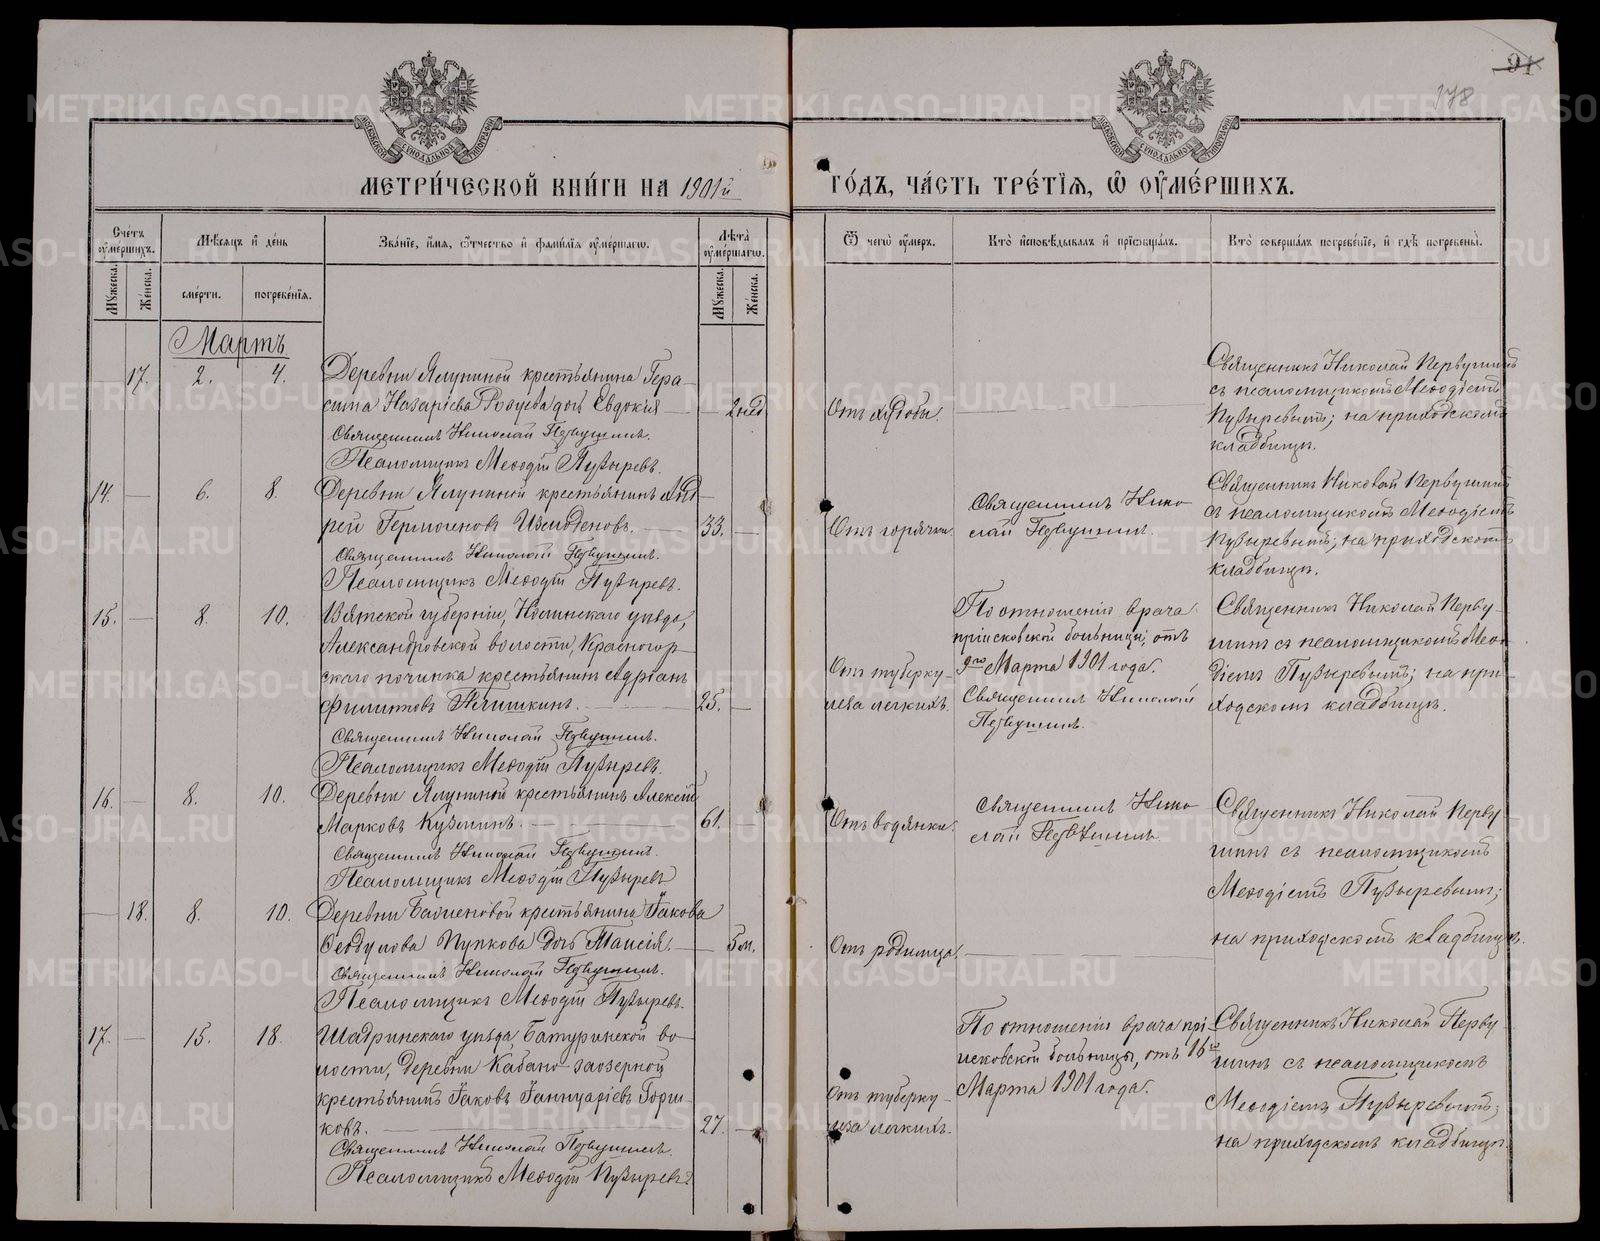 91
178
МОСКОВСКОЙ СѴНОДАЛЬНОЙ ТИПОГРАФІИ
МОСКОВСКОЙ СѴНОДАЛЬНОЙ ТИПОГРАФІИ
МЕТРИ́ЧЕСКОЙ КНИ́ГИ НА 1901й
ГО́ДЪ, ЧА́СТЬ ТРЕ́ТІѦ, Ѡ҆ ОУ҆МЕ́РШИХЪ.
Сче́тъ оу҆ме́ршихъ.
Мѣ́сяцъ и҆ де́нь
Зва́ніе, и҆́мѧ, ѻ҆́тчество и҆ фами́лія оу҆ме́ршагѡ.
Лѣ́та оу҆ме́ршагѡ.
Ѿ чегѡ̀ оу҆́меръ.
Кто̀ и҆сповѣ́дывалъ и҆ прїѡбща́лъ.
Кто̀ соверша́лъ погребе́ніе, и҆ гдѣ̀ погребены̀.
Мꙋ́жеска.
Же́нска.
сме́рти.
погребе́нїя.
Мꙋ́жеска.
Же́нска.
Мартъ
— 17. 2. 4.
Деревни Ялуниной крестьянина Гера-
сима Назаріева дочь Евдокія — 2 нед
Священникъ Николай Первушинъ.
Псаломщикъ Меѳодій Пузыревъ.
Отъ худобы.
Священникъ Николай Первушинъ
съ псаломщикомъ Меѳодіемъ
Пузыревымъ; на приходскомъ
кладбищѣ.
14. — 6. 8.
Деревни Ялуниной крестьянинъ Анд-
рей Гермогеновъ Измоденовъ. — 33. —
Священникъ Николай Первушинъ.
Псаломщикъ Меѳодій Пузыревъ.
Отъ горячки.
Священникъ Нико-
лай Первушинъ.
Священникъ Николай Первушинъ
съ псаломщикомъ Меѳодіемъ
Пузыревымъ; на приходскомъ
кладбищѣ.
15. — 8. 10.
Вятской губерніи, Нолинскаго уѣзда,
Александровской волости, Красногор-
скаго починка крестьянинъ Адріанъ
Филипповъ — 25. —
Священникъ Николай Первушинъ.
Псаломщикъ Меѳодій Пузыревъ.
Отъ туберку-
леза легкихъ.
По отношенію врача
пріисковской больницы, отъ
9го Марта 1901 года.
Священникъ Николай
Первушинъ.
Священникъ Николай Перву-
шинъ съ псаломщикомъ Меѳо-
діемъ Пузыревымъ; на при-
ходскомъ кладбищѣ.
16. — 8. 10.
Деревни Ялуниной крестьянинъ Алексѣй
Марковъ Кузминъ. — 61. —
Священникъ Николай Первушинъ.
Псаломщикъ Меѳодій Пузыревъ
Отъ водянки.
Священникъ Нико-
лай Первушинъ.
Священникъ Николай Перву-
шинъ съ псаломщикомъ
Меѳодіемъ Пузыревымъ;
на приходскомъ кладбищѣ.
— 18. 8. 10.
Деревни крестьянина Іакова
Ѳеодулова Пупкова дочь Таисія. — 5 м.
Священникъ Николай Первушинъ.
Псаломщикъ Меѳодій Пузыревъ.
Отъ родимца.
17. — 15. 18.
Шадринскаго уѣзда, Батуринской во-
лости, деревни Кабано-заозерной
крестьянинъ Іаковъ Іаннуаріевъ Горш-
ковъ. — 27. —
Священникъ Николай Первушинъ.
Псаломщикъ Меѳодій Пузыревъ
Отъ туберку-
леза легкихъ.
По отношенію врача прі-
исковской больницы, отъ 16го
Марта 1901 года.
Священникъ Николай Перву-
шинъ съ псаломщикомъ
Меѳодіемъ Пузыревымъ;
на приходскомъ кладбищѣ.
METRIKI.GASO-URAL.RU